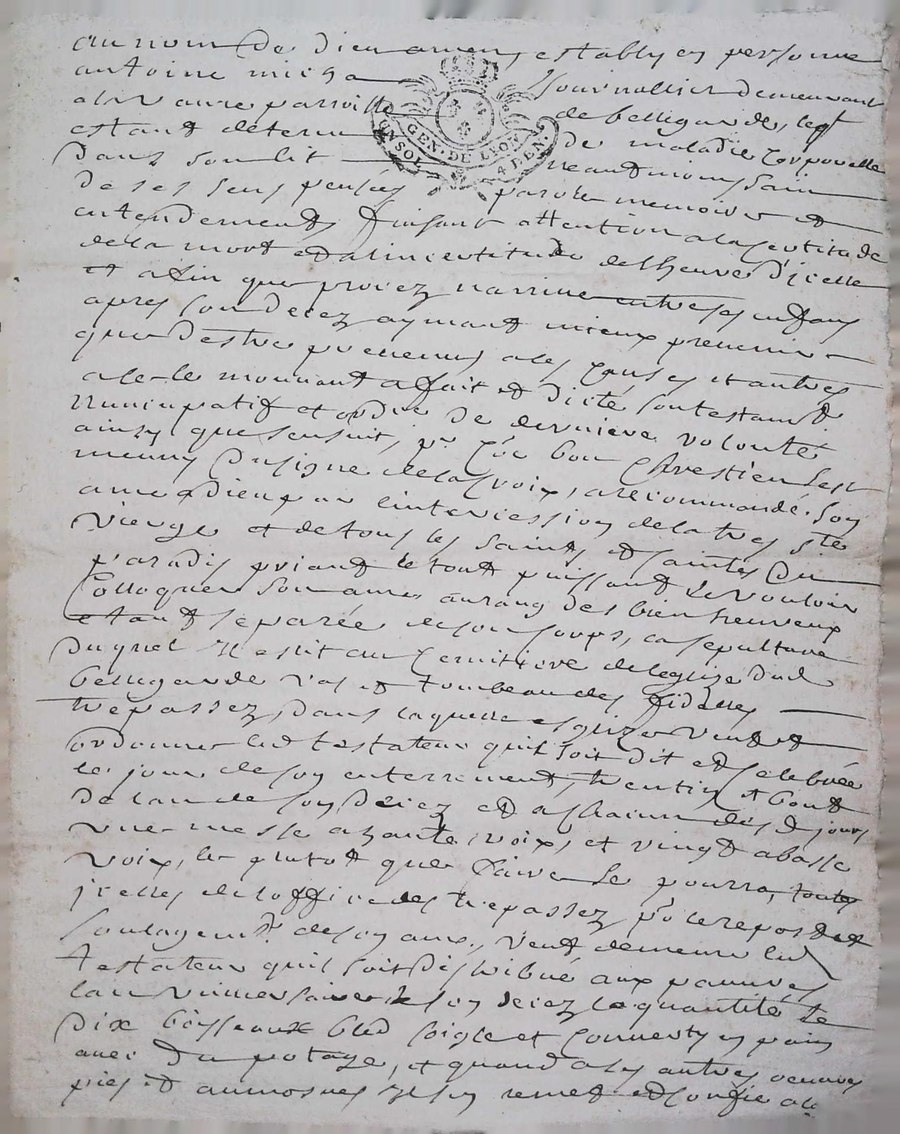 au nom de dieu amen, estably en personne
antoine micha journallier demeurant
a la vaure parroisse de bellegarde, leql
estant detenu de maladie corporelle
dans son lit neandmoins sain
de ses sens pensées parole memoire et
entendement, faisant attention a la certitude
de la mort et a lincertitude de lheure dicelle
et afin que procez narrive entre ses enfans
apres son decez aymant mieux prevenir
que destre prevenus a les causes et autres
a ce le mouvant a fait et dicté son testamt
nuncupatif et ordre de derniere volonté
ainsy que sensuit, pr coe bon chrestien sest
muny du signe de la croix, a recommandé son
ame a dieu par lintercession de la tres ste
vierge et de tous les saints et saintes du
paradis priant le tout puissant de vouloir
colloquer son ame au rang des bienheureux
estant separée de son corps, la sepulture
duquel il eslit au cemitiere de leglise dud
bellegarde vas et tombeau des fidelles
trepassez, dans laquelle esglize veut et
ordonne led testateur quil soit dit et celebrée
le jour de son enterrement, trentin et bout
de lan de son decez et a chacun des d jours
une messe a haute voix, et vingt a basse
voix, le plutot que faire se pourra, toutes
jcelles de loffice des trepassez pr le repos et
soulagemt de son ame, veut de meme led
testateur quil soit distribué aux pauvres
lanniversaire de son decez la quantité de
dix boisseaux bled soigle et converty en pain
avec du potage, et quand a les autres oeuvres
pies et aumosnes il sen remet et confie a la
GEN. DE LYON
4 DEN.